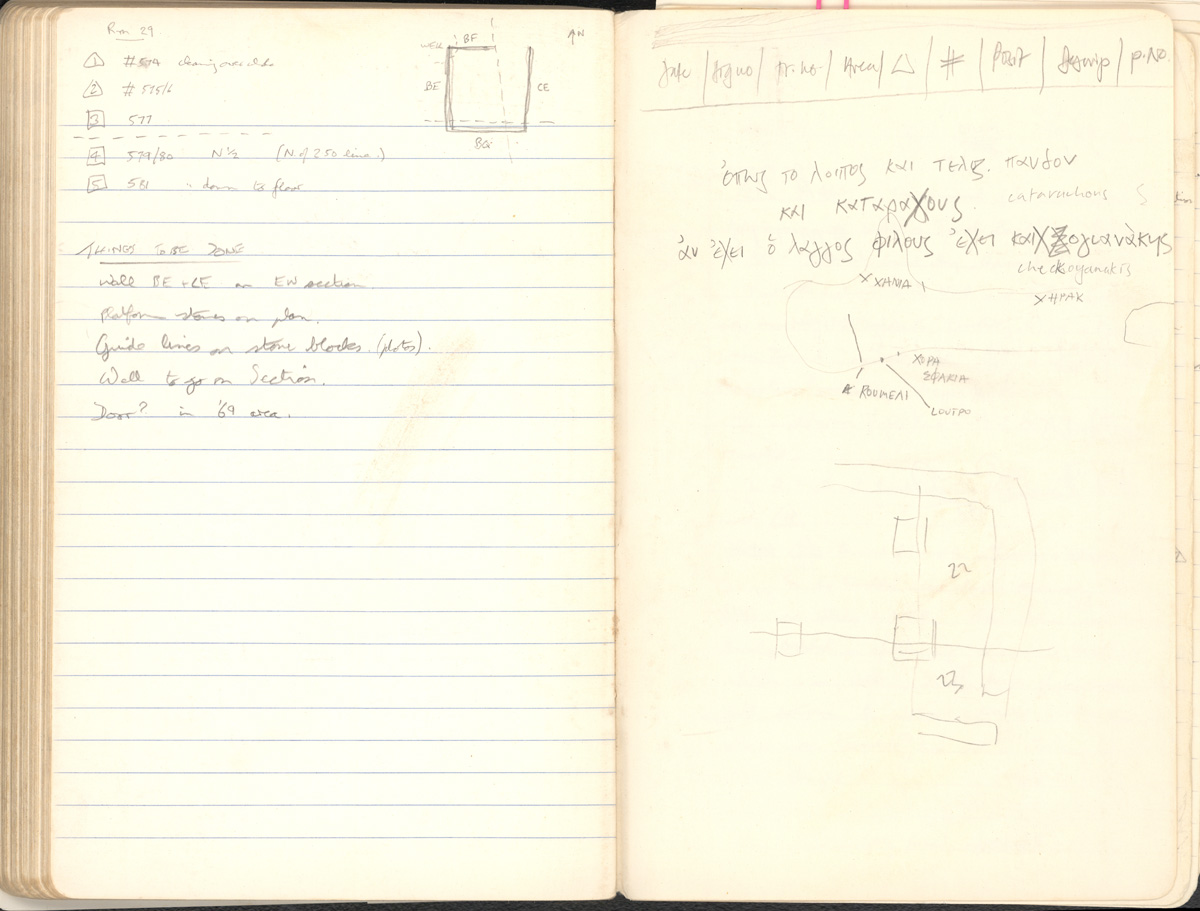 Rm 29
1 #574
2 # 575/6
3 577
4 579/80 N½ (N. of 250 line.)
5 581 " down to floor
WEU BF
N
BE CE
BGi
THINGS TO BE DONE
Wall BE + CE on EW section
Platform stones on plan.
Guide lines on stone blocks. (photos).
Wall to go on Section.
Door? in '69 area.
Date | Area | △ | # | Post | Descrip | p. No.
ὁπως το λοιπος και τελος. παυθον
και καταραχους. catarachous
ἀν ἐχει ὁ λαγγος φιλους ἐχει και χογιανάκης
checkoyanakis
X ΧΑΝΙΑ
ΧΗΡΑΚ
ΧΩΡΑ
ΣΦΑΚΙΑ
A. ROUMELI
LOUTRO
22
23